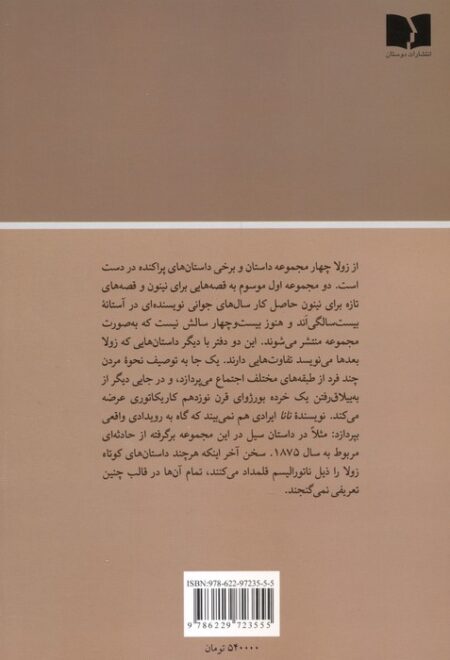 انتشارات دوستان
از زولا چهار مجموعه داستان و برخی داستان‌های پراکنده در دست
است. دو مجموعه اول موسوم به قصه‌هایی برای نینون و قصه‌های
تازه برای نینون حاصل کار سال‌های جوانی نویسنده‌ای در آستانهٔ
بیست‌سالگی‌اند و هنوز بیست‌وچهار سالش نیست که به‌صورت
مجموعه منتشر می‌شوند. این دو دفتر با دیگر داستان‌هایی که زولا
بعدها می‌نویسد تفاوت‌هایی دارند. یک جا به توصیف نحوهٔ مردن
چند فرد از طبقه‌های مختلف اجتماع می‌پردازد، و در جایی دیگر از
به‌ییلاق‌رفتن یک خرده بورژوای قرن نوزدهم کاریکاتوری عرضه
می‌کند. نویسندهٔ نانا ایرادی هم نمی‌بیند که گاه به رویدادی واقعی
بپردازد: مثلاً در داستان سیل در این مجموعه برگرفته از حادثه‌ای
مربوط به سال ۱۸۷۵. سخن آخر اینکه هرچند داستان‌های کوتاه
زولا را ذیل ناتورالیسم قلمداد می‌کنند، تمام آن‌ها در قالب چنین
تعریفی نمی‌گنجند.
ISBN:978-622-97235-5-5
9 786229 723555
۵۴۰۰۰۰ تومان